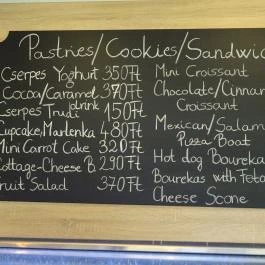 Pastries/Cookies/Sandwic
Cserpes Yoghurt 350Ft
Cocoa/Caramel drink 370Ft
Cserpes Trudi 150Ft
Cupcake, Marlenka 480Ft
Mini Carrot Cake 320Ft
Cottage-Cheese B. 290Ft
Fruit Salad 370Ft
Mini Croissant
Chocolate/Cinnam
Croissant
Mexican/Salam
Pizza Boat
Hot dog Bourekas
Bourekas with Feta
Cheese Scone